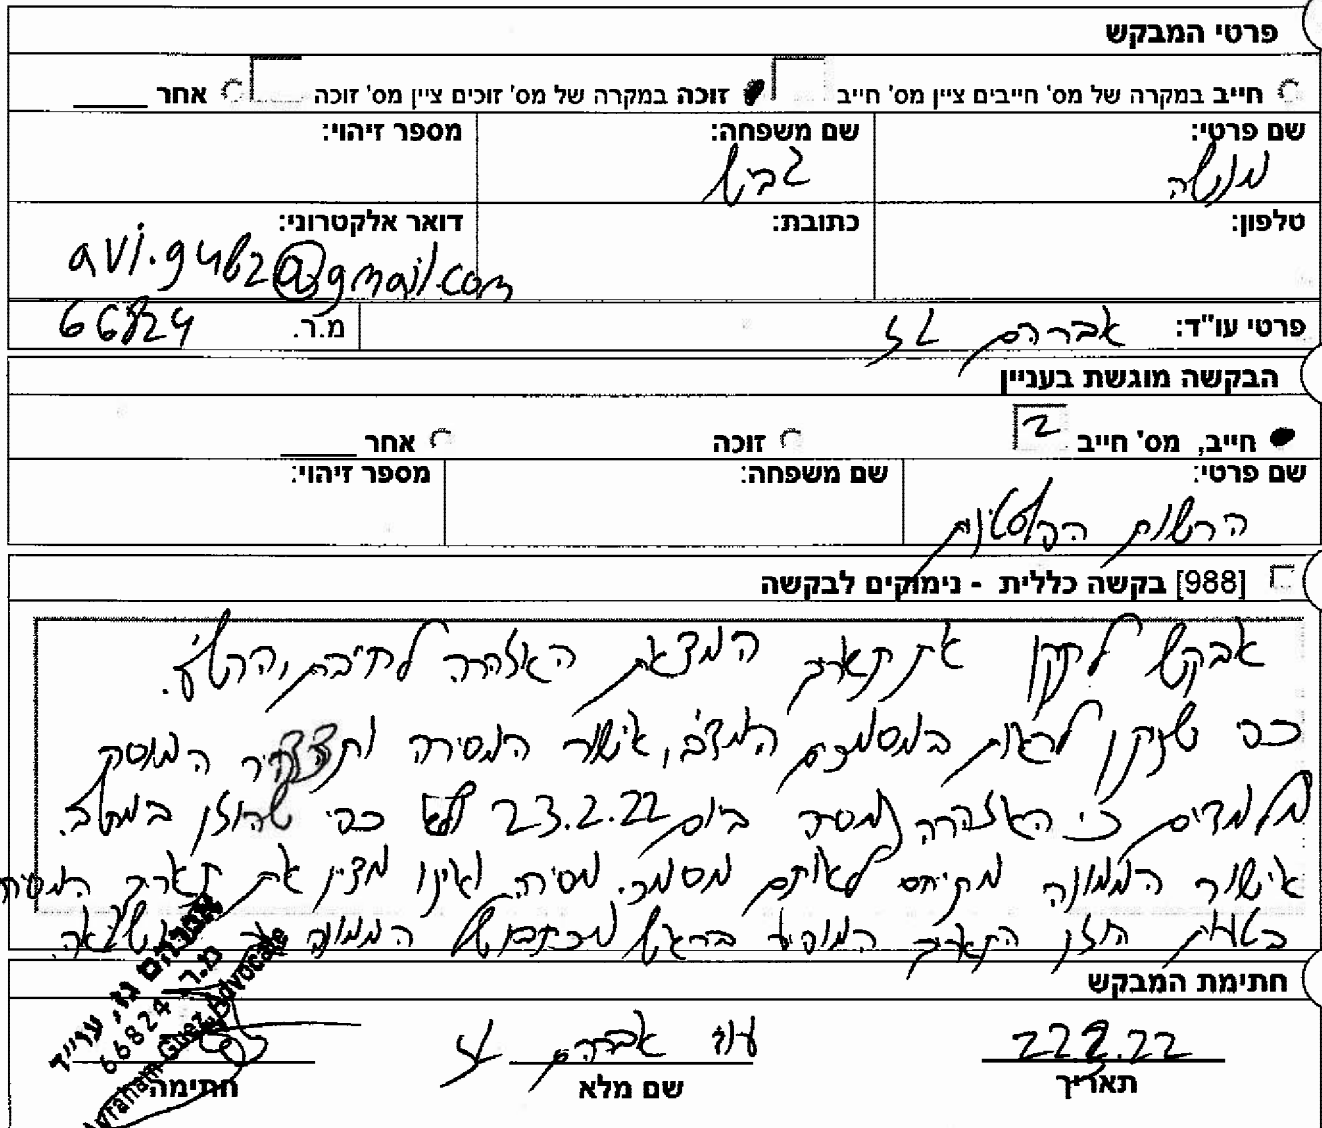 פרטי המבקש
חייב במקרה של מס' חייבים ציין מס' חייב זוכה במקרה של מס' זוכים ציין מס' זוכה אחר
שם פרטי: שם משפחה: מספר זיהוי:
מנשה גביש
טלפון: כתובת: דואר אלקטרוני:
avi.gu62@gmail.com
פרטי עו"ד: אברהם גז מ.ר. 66824
הבקשה מוגשת בעניין
חייב, מס' חייב 2 זוכה אחר
שם פרטי: שם משפחה: מספר זיהוי:
הרשות הפלסטינית
[988] בקשה כללית - נימוקים לבקשה
אבקש לתקן את תאריך המצאת האזהרה לחייבת,
כפי שניתן לראות במסמכים המצ"ב, אישור המסירה ותצהיר המוסר
מלמדים כי האזהרה נמסרה ביום 23.2.22 ולא כפי שהוזן במערכת.
אישור הממונה מתייחס לאותם מסמכי מסירה ואינו מציין את תאריך המסירה
בטעות הוזן התאריך המופיע בראש מכתבם של הממונה
חתימת המבקש
עו"ד אברהם גז
תאריך שם מלא חתימה
אברהם גז, עו"ד
מ.ר 66824
Avraham Guez, Advocate